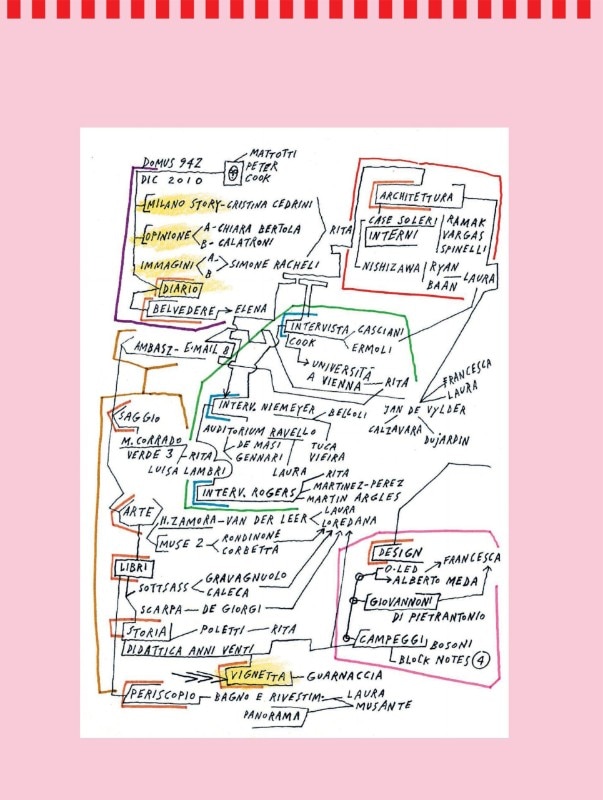 DOMUS 942
DIC 2010
MATTOTTI
PETER
COOK
MILANO STORY - CRISTINA CEDRINI
OPINIONE
A - CHIARA BERTOLA
B - CALATRONI
IMMAGINI
A
B
SIMONE RACHELI
RITA
DIARIO
BELVEDERE
ELENA
ARCHITETTURA
CASE SOLERI
INTERNI
RAMAK
VARGAS
SPINELLI
NISHIZAWA
RYAN
BAAN
LAURA
AMBASZ - E-MAIL 8
INTERVISTA
COOK
CASCIANI
ERMOLI
UNIVERSITÀ
A VIENNA
RITA
FRANCESCA
LAURA
JAN DE VYLDER
CALZAVARA
DUJARDIN
SAGGIO
M. CORRADO
VERDE 3
RITA
LUISA LAMBRI
INTERV. NIEMEYER
BELLOLI
AUDITORIUM RAVELLO
DE MASI
GENNARI
LAURA
TUCA
VIEIRA
INTERV. ROGERS
RITA
MARTINEZ-PEREZ
MARTIN ARGLES
ARTE
H. ZAMORA - VAN DER LEER
LAURA
LOREDANA
MUSE 2
RONDINONE
CORBETTA
LIBRI
SOTTSASS
GRAVAGNUOLO
CALECA
SCARPA - DE GIORGI
STORIA
POLETTI - RITA
DIDATTICA ANNI VENTI
DESIGN
O-LED
ALBERTO MEDA
FRANCESCA
GIOVANNONI
DI PIETRANTONIO
CAMPEGGI
BOSONI
BLOCK NOTES 4
VIGNETTA - GUARNACCIA
PERISCOPIO - BAGNO E RIVESTIM -
LAURA
MUSANTE
PANORAMA